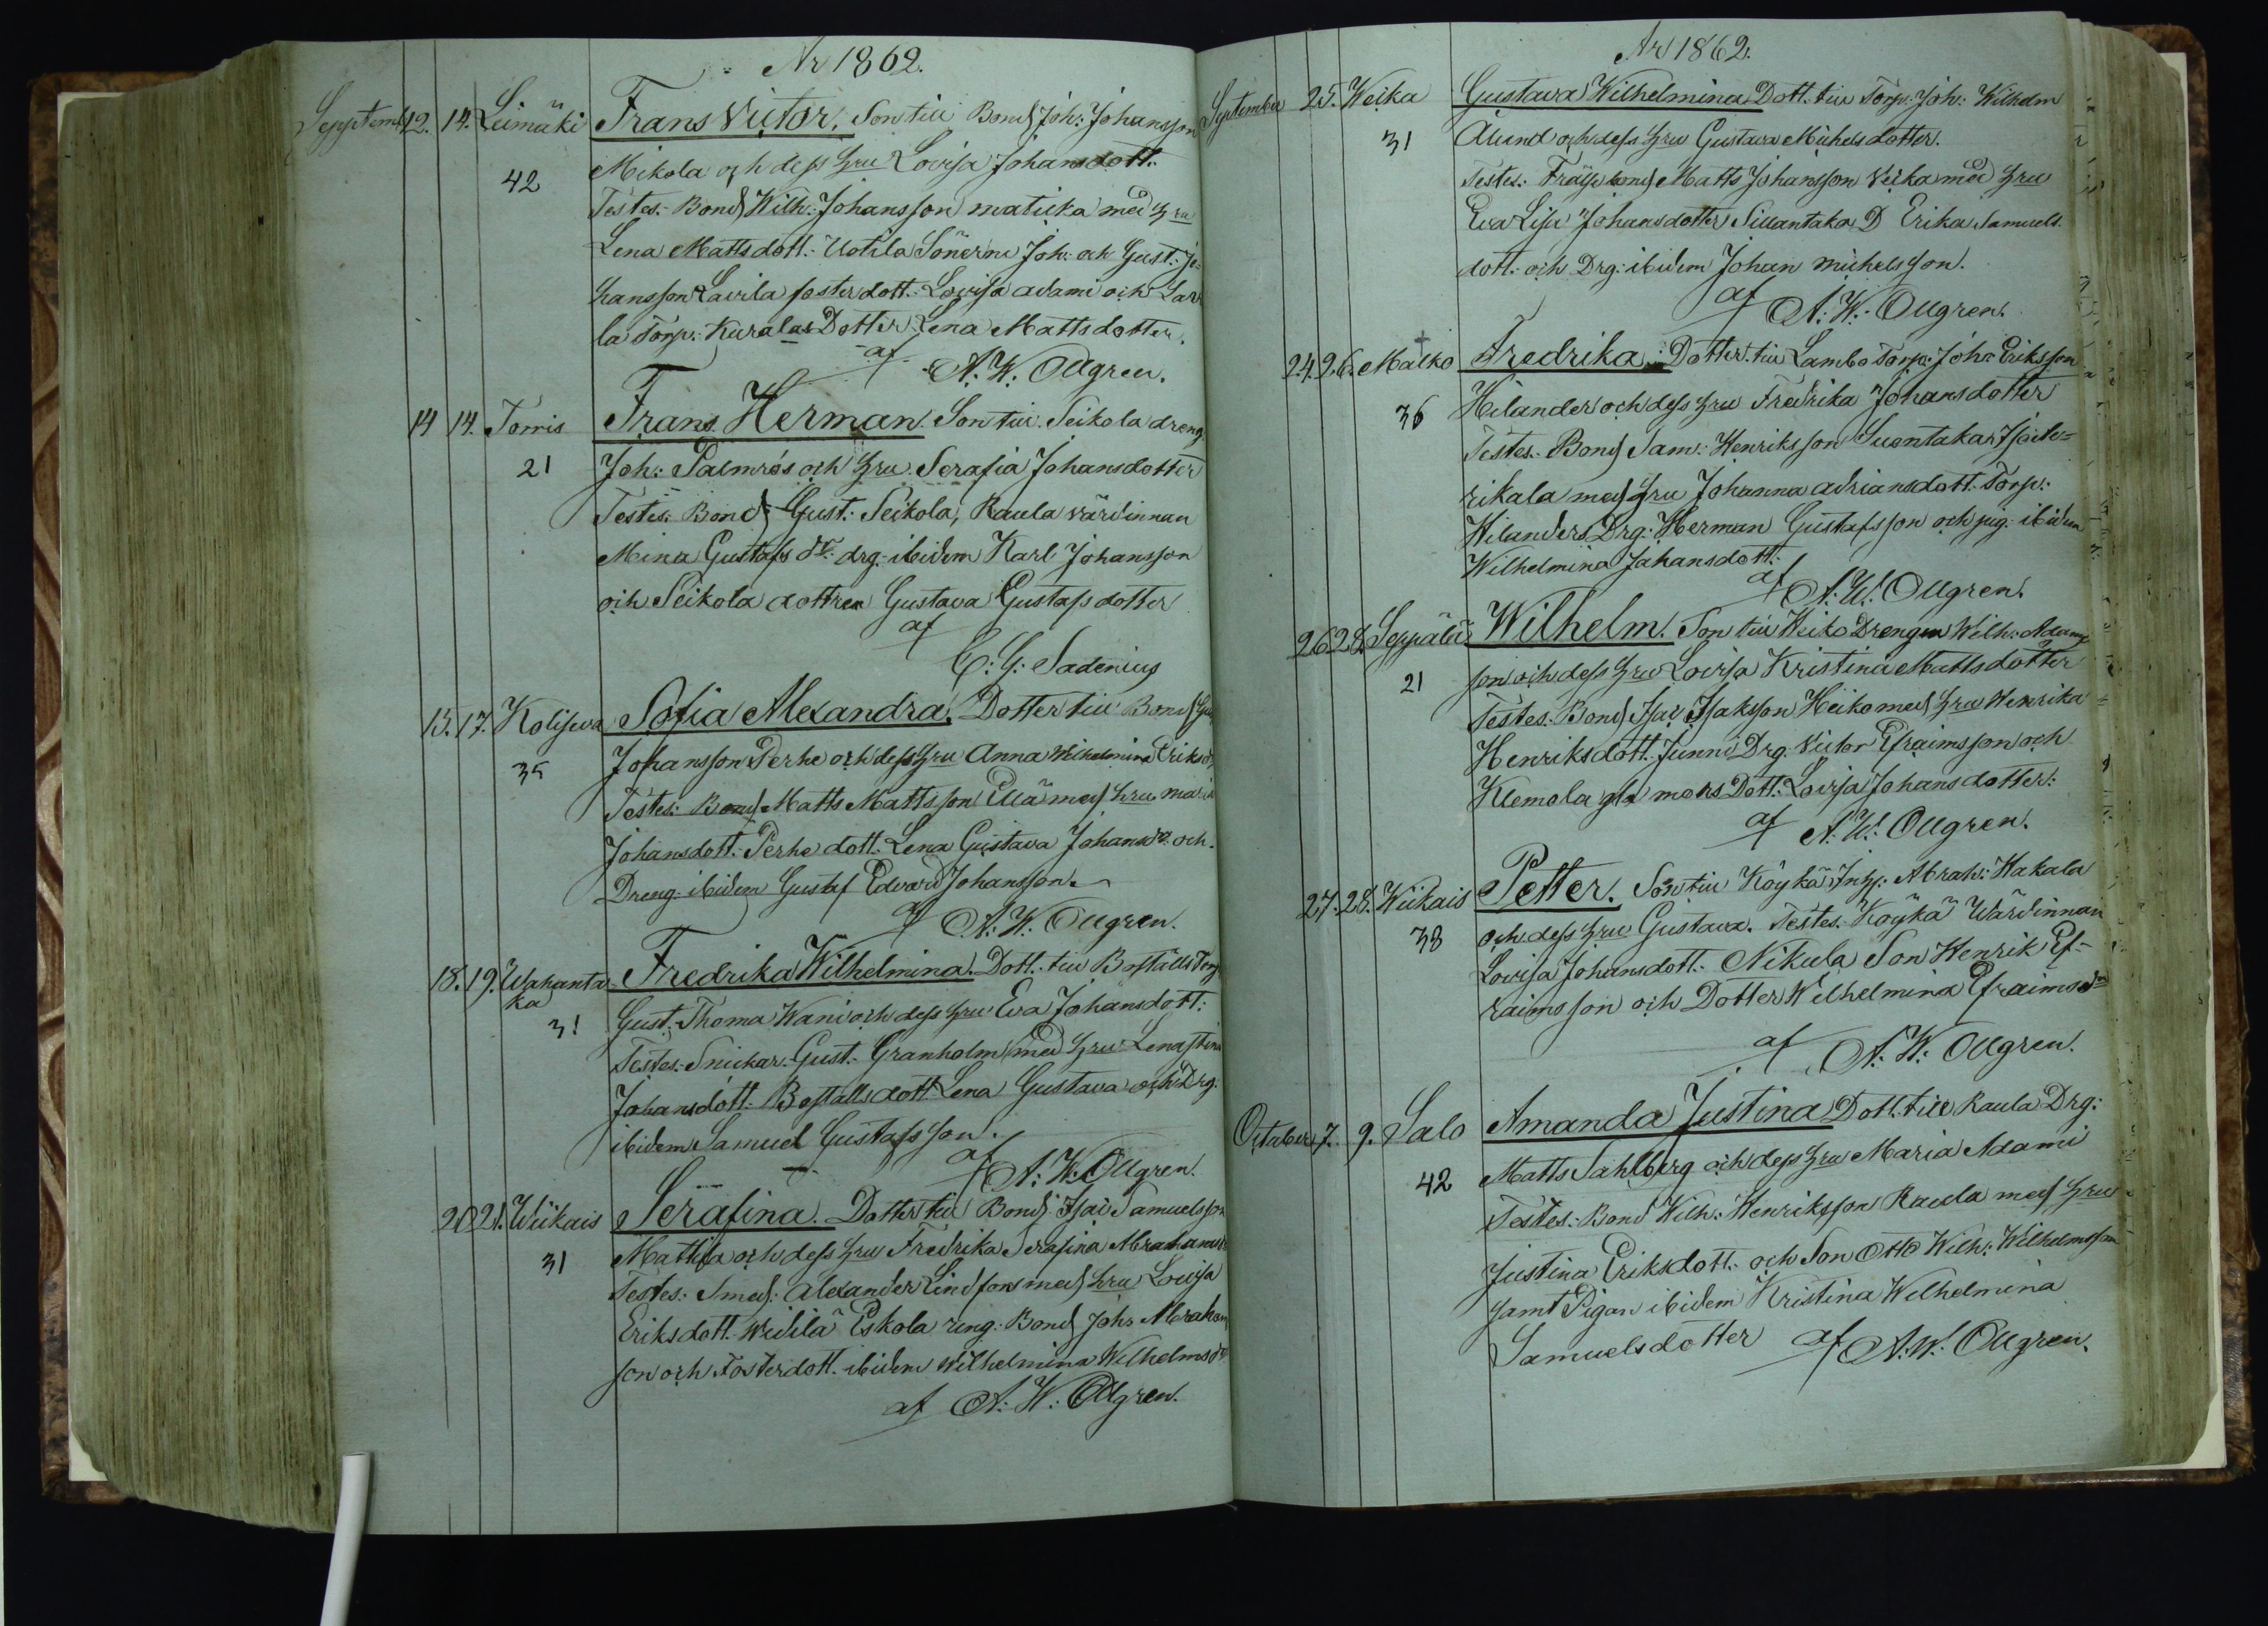 År 1862.
Septemb. 12. 14. Liimäki Frans Victor. Son till Bond Joh: Johansson
42 Mikola och dess hru Lovisa Johansdott.
Testes: Bond Wilh: Johansson med hru
Lena Mattsdott. Uotila Sönerne Joh: och Gust: Jo=
hansson Lavila fosterdott. Lovisa adami och
la Torp: Kuralas Dotter Lena Mattsdotter.
af A. W. Ollgren.
14 14. Tomis Frans Herman. Son till Seikola dreng
21 Joh: Palmrós och hru Serafia Johansdotter
Testes: Bond Gust: Seikola, Raula värdinnan
Mina Gustafs dr drg. ibidem Karl Johansson
och Seikola dottren Gustava Gustafsdotter
af
C: G: Sadenius
15. 17. Sofia Alexandra. Dotter till Bond
35 Johansson Perhe och dess hru Anna Wilhelmina Eriksd
Testes: Bond Matts Mattsson med hru
Johansdott. Perhe dott. Lena Gustava Johansdr och
Dreng ibidem Gustaf Edvard Johansson.
af A. W. Ollgren.
18. 19. Wahanta Fredrika Wilhelmina. Dott. till Boställs Torp
ka
31 Gust: Thoma Wani och dess hru Eva Johansdott:
Testes: Snickar. Gust. Granholm med hru Lenastina
Johansdott. Boställsdott Lena Gustava och Drg.
ibidem Samuel Gustafsson.
af A. W. Ollgren.
20 21. Wiikais Serafina. Dotter till Bond Isai Samuelsson
31 Mattila och dess hru Fredrika Serafina Abrahamsd
Testes: Smed: Alexander Lindfors med hru Lovisa
Eriksdott. Widilä Eskola ung: Bond Joh: Abraham
son och Fosterdott. ibidem Wilhelmina Wilhelmsdr
af A. W. Ollgren.
År 1862.
September 25. Weika Gustava Wilhelmina Dott. till Torp: Joh: Wilhelm
31 och dess hru Gustava Michelsdotter.
Testes: bond Matts Johansson Veika med hru
Eva Lisa Johansdotter Sillantaka D Erika Samuels.
dott. och Drg: ibidem Johan Michelsson.
af A. W. Ollgren.
24. 26. Malko Fredrika. Dotter till Lambo Torp: Joh: Eriksson
36 Hilander och dess hru Fredrika Johansdotter
Testes: Bond Sam: Henriksson Suontaka
rikala med hru Johanna adriansdott. Torp:
Hilanders Drg: Herman Gustafsson och pig. ibidem
Wilhelmina Johansdott:
af A. W. Ollgren.
26 28. Seppälä Wilhelm. Son till Heiko Drengen Wilh: Adams
21 son och dess hru Lovisa Kristina Mattsdotter
Testes: Bond Isai Isaksson Heiko med hru Henrika
Henriksdott. Junni Drg. Victor Efraimsson och
Klemola Dott. Lovisa Johansdotter.
af A. W. Ollgren.
27. 28. Wiikais Petter. Son till Köykä Inh: Abrah: Hakala
38 och dess hru Gustava. Testes. Köykä Wärdinnan
Lovisa Johansdott. Nikula Son Henrik Ef-
raimsson och Dotter Wilhelmina Efraimsdr
af A. W. Ollgren.
October 7. 9. Salo Amanda Justina Dott. till Raula Drg:
42 Matts Sahlberg och dess hru Maria Adami
Testes: Bond Wilh: Henriksson Raula med hru
Justina Eriksdott. och Son Otto Wilh: Wilhelmsson
samt Pigan ibidem Kristina Wilhelmina
Samuelsdotter af A. W. Ollgren.